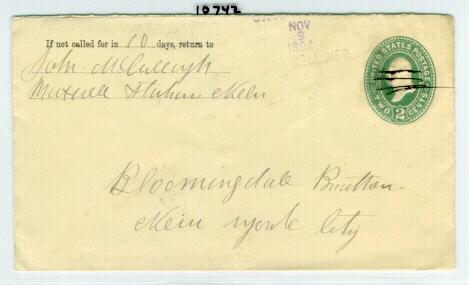 10742
NOV
9
1894
WELL, NEB
If not called for in 10 days, return to
John McCullough
Maxwell Station Neb
UNITED STATES POSTAGE
TWO 2 CENTS
Bloomingdale
New York City